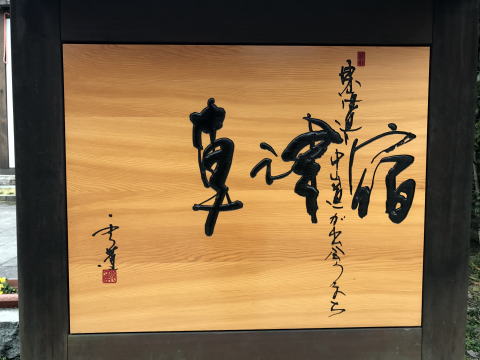 東海道中山道が出会うところ
草津宿